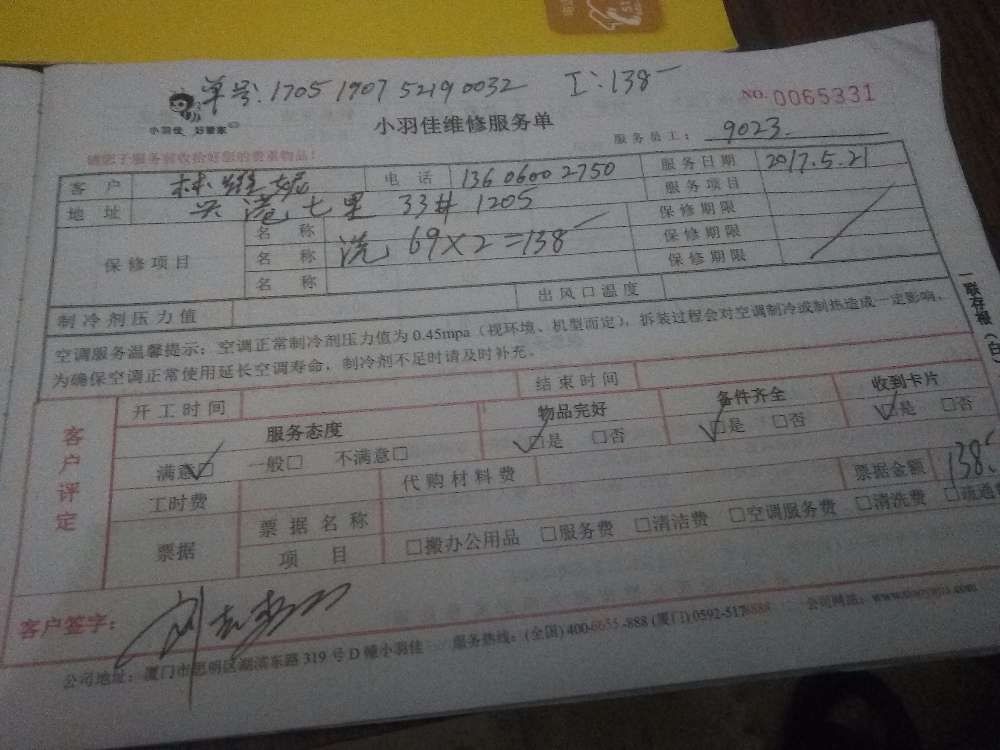 单号:1705 1907 52190032 工:138
NO. 0065331
小羽佳 好管家
小羽佳维修服务单
服务员工: 9023
请您于服务前收拾好您的贵重物品!
客户 林维妮 电话 13606002750 服务日期 2017.5.21
地址 兴港七里 33# 1205 服务项目
保修项目 名称 保修期限
名称 洗 69×2=138 保修期限
名称 保修期限
制冷剂压力值 出风口温度
空调服务温馨提示:空调正常制冷剂压力值为0.45mpa(视环境、机型而定),拆装过程会对空调制冷或制热造成一定影响,
为确保空调正常使用延长空调寿命,制冷剂不足时请及时补充。
一联存根(白
客户评定
开工时间 结束时间
服务态度 物品完好 备件齐全 收到卡片
满意☑ 一般□ 不满意□ ☑是 □否 ☑是 □否 ☑是 □否
工时费 代购材料费 票据金额 138
票据 票据名称
项目 □搬办公用品 □服务费 □清洁费 □空调服务费 □清洗费 □疏通
客户签字:
公司地址:厦门市思明区湖滨东路319号D幢小羽佳 服务热线:(全国)400-6655-888 (厦门)0592-5178888 公司网站:www.xiaoyujia.com